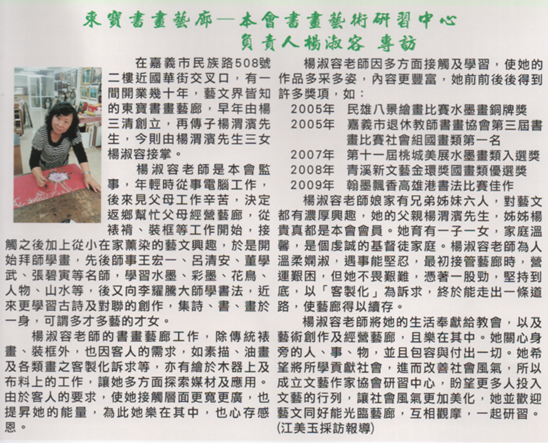 東寶書畫藝廊—本會書畫藝術研習中心
負責人楊淑容 專訪
在嘉義市民族路508號
二樓近國華街交叉口，有一
間開業幾十年，藝文界皆知
的東寶書畫藝廊，早年由楊
三清創立，再傳子楊渭濱先
生，今則由楊渭濱先生三女
楊淑容接掌。
楊淑容老師是本會監
事，年輕時從事電腦工作，
後來見父母工作辛苦，決定
返鄉幫忙父母經營藝廊，從
裱褙、裝框等工作開始，接
觸之後加上從小在家薰染的藝文興趣，於是開
始拜師學畫，先後師事王宏一、呂清安、董學
武、張碧寅等名師，學習水墨、彩墨、花鳥、
人物、山水等，後又向李耀騰大師學書法，近
來更學習古詩及對聯的創作，集詩、書、畫於
一身，可謂多才多藝的才女。
楊淑容老師的書畫藝廊工作，除傳統裱
畫、裝框外，也因客人的需求，如素描、油畫
及各類畫之客製化訴求等，亦有繪於木器上及
布料上的工作，讓她多方面探索媒材及應用。
由於客人的要求，使她接觸層面更寬更廣，也
提昇她的能量，為此她樂在其中，也心存感
恩。
楊淑容老師因多方面接觸及學習，使她的
作品多采多姿，內容更豐富，她前前後後得到
許多獎項，如：
2005年 民雄八景繪畫比賽水墨畫銅牌獎
2005年 嘉義市退休教師書畫協會第三屆書
畫比賽社會組國畫類第一名
2007年 第十一屆桃城美展水墨畫類入選獎
2008年 青溪新文藝金環獎國畫類優選獎
2009年 翰墨飄香高雄港書法比賽佳作
楊淑容老師娘家有兄弟姊妹六人，對藝文
都有濃厚興趣，她的父親楊渭濱先生，姊姊楊
貴真都是本會會員。她育有一子一女，家庭溫
馨，是個虔誠的基督徒家庭。楊淑容老師為人
溫柔嫻淑，遇事能堅忍，最初接管藝廊時，營
運艱困，但她不畏艱難，憑著一股勁，堅持到
底，以「客製化」為訴求，終於能走出一條道
路，使藝廊得以續存。
楊淑容老師將她的生活奉獻給教會，以及
藝術創作及經營藝廊，且樂在其中。她關心身
旁的人、事、物，並且包容與付出一切。她希
望將所學貢獻社會，進而改善社會風氣，所以
成立文藝作家協會研習中心，盼望更多人投入
文藝的行列，讓社會風氣更加美化，她並歡迎
藝文同好能光臨藝廊，互相觀摩，一起研習。
(江美玉採訪報導)